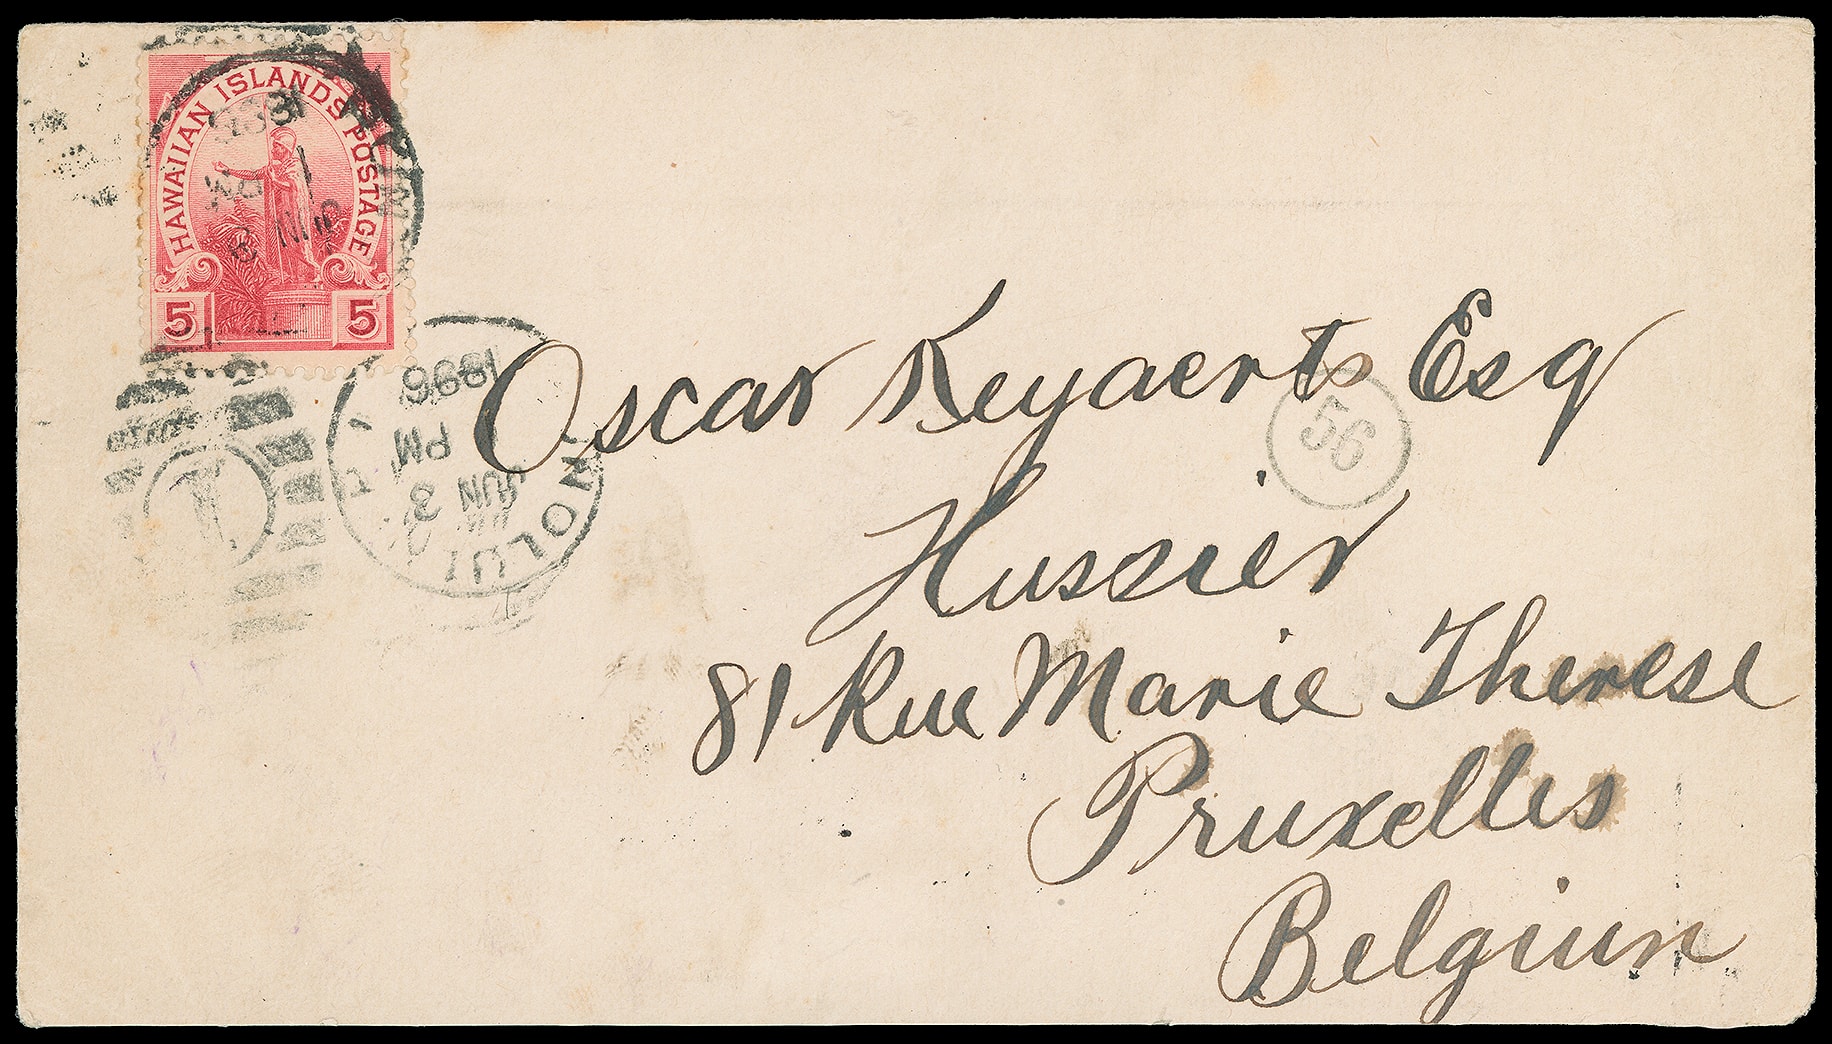 HAWAIIAN ISLANDS POSTAGE
5 5
1896
PM
JUN 3
HONOLULU
Oscar Keyaerts Esq
56
Hussier
81 Rue Marie Therese
Bruxelles
Belgium